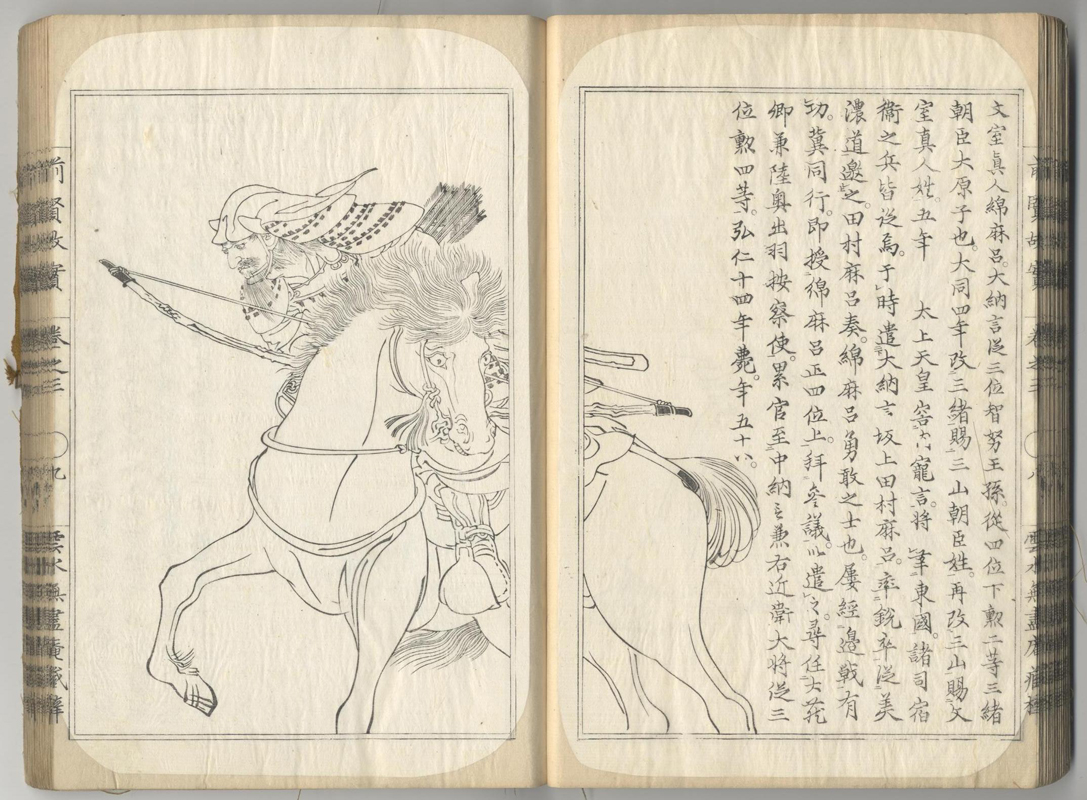 文室真人綿麻呂。大納言従三位智努王孫。從四位下勲二等三緒
朝臣大原子也。大同四年改三緒賜三山朝臣姓。再改三山賜文
室真人姓。五年 太上天皇 寵言。将 東國。諸司宿
衛之兵皆従焉。于時遣大納言坂上田村麻呂。率鋭卒従美
濃道邀之。田村麻呂奏。綿麻呂勇敢之士也。屡經邊戦有
功。冀同行。即授綿麻呂正四位上。拜参議。以遣之。尋任大蔵
卿兼陸奥出羽按察使。累官至中納言兼右近衛大将従三
位勲四等。弘仁十四年薨。年五十八。
前賢故實 巻之三 八 雲水無盡
前賢故實 巻之三 九 雲水無盡 蔵